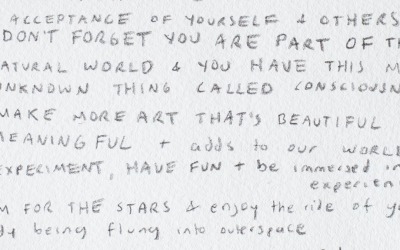 ACCEPTANCE OF YOURSELF & OTHERS
DON'T FORGET YOU ARE PART OF TH
NATURAL WORLD & YOU HAVE THIS M
UNKNOWN THING CALLED CONSCIOUSN
MAKE MORE ART THAT'S BEAUTIFUL
MEANINGFUL + adds to our WORLD
EXPERIMENT, HAVE FUN + be immersed in
experien
M FOR THE STARS & enjoy the ride of yo
dy being flung into outerspace